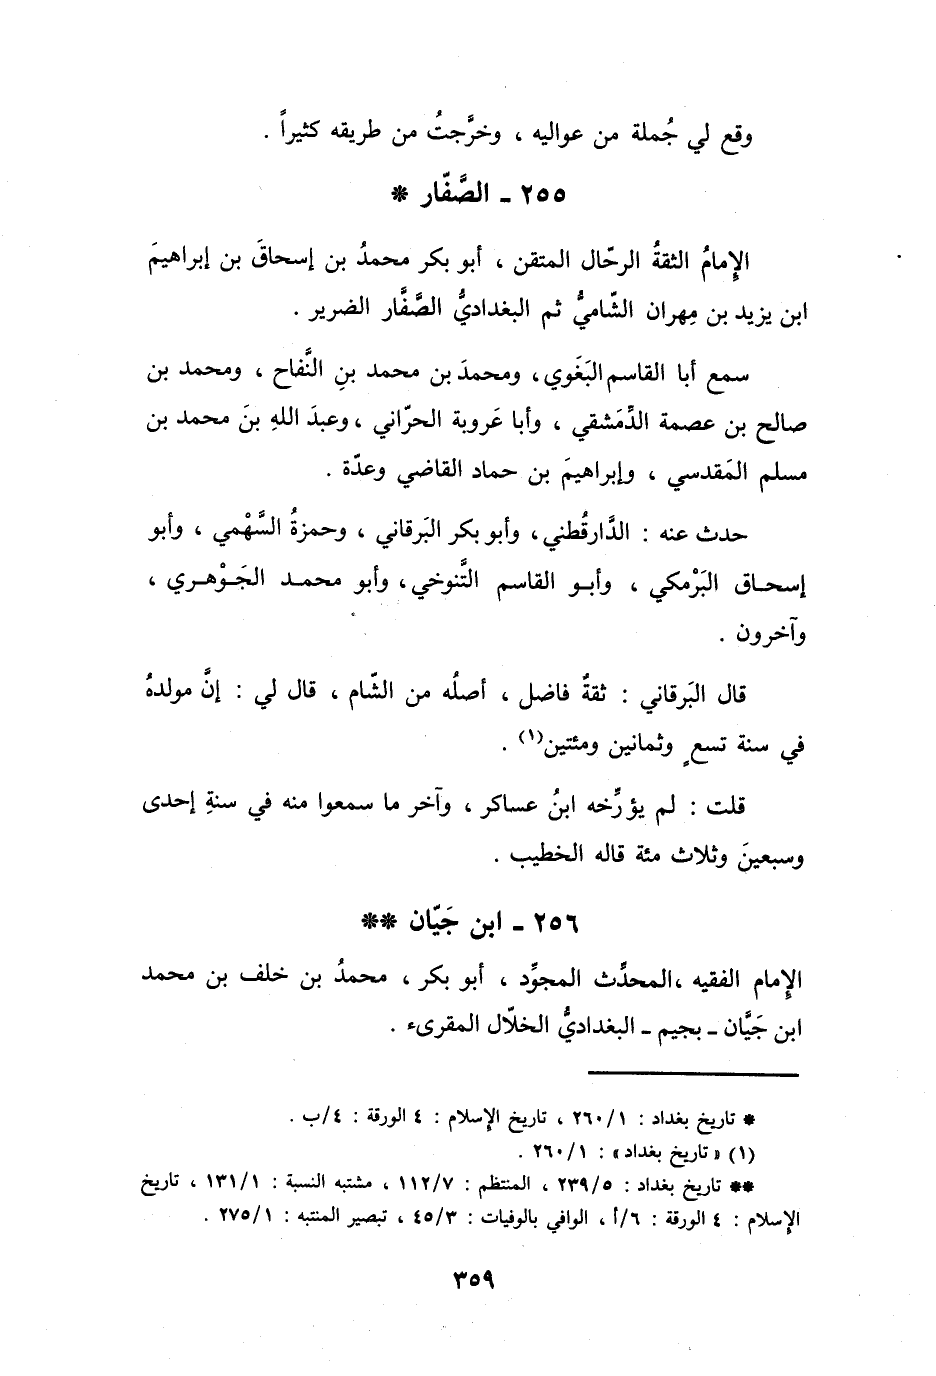 وقع لي جُملة من عواليه ، وخرَّجتُ من طريقه كثيراً .
٢٥٥ ـ الصَّفّار *
الإِمامُ الثقةُ الرحّال المتقن ، أبو بكر محمدُ بن إسحاقَ بن إبراهيمَ
ابن يزيد بن مِهران الشّاميُّ ثم البغداديُّ الصَّفَّار الضرير .
سمع أبا القاسم البَغَوي، ومحمدَ بن محمد بنِ النَّفاح ، ومحمد بن
صالح بن عصمة الدِّمَشقي ، وأبا عَروبة الحرّاني ، وعبدَ اللهِ بنَ محمد بن
مسلم المَقدسي ، وإبراهيمَ بن حماد القاضي وعدّة .
حدث عنه : الدَّارقُطني، وأبو بكر البَرقاني ، وحمزةُ السَّهْمي ، وأبو
إسحاق البَرْمكي ، وأبو القاسم التَّنوخي، وأبو محمد الجَوْهري ،
وآخرون .
قال البَرقاني : ثقةٌ فاضل ، أصلُه من الشّام ، قال لي : إنَّ مولدهُ
في سنة تسعٍ وثمانين ومئتين(١) .
قلت : لم يؤرِّخه ابنُ عساكر ، وآخر ما سمعوا منه في سنةِ إحدى
وسبعينَ وثلاث مئة قاله الخطيب .
٢٥٦ ـ ابن جَيّان **
الإِمام الفقيه ،المحدِّث المجوِّد ، أبو بكر ، محمدُ بن خلف بن محمد
ابن جَيَّان ـ بجيم ـ البغداديُّ الخلّال المقرىء .
* تاريخ بغداد : ٢٦٠/١ ، تاريخ الإِسلام : ٤ الورقة : ٤/ب .
(١) « تاريخ بغداد» : ٢٦٠/١ .
** تاريخ بغداد : ٢٣٩/٥ ، المنتظم : ١١٢/٧ ، مشتبه النسبة : ١٣١/١ ، تاريخ
الإِسلام : ٤ الورقة : ٦/أ ، الوافي بالوفيات : ٤٥/٣ ، تبصير المنتبه : ٢٧٥/١ .
٣٥٩